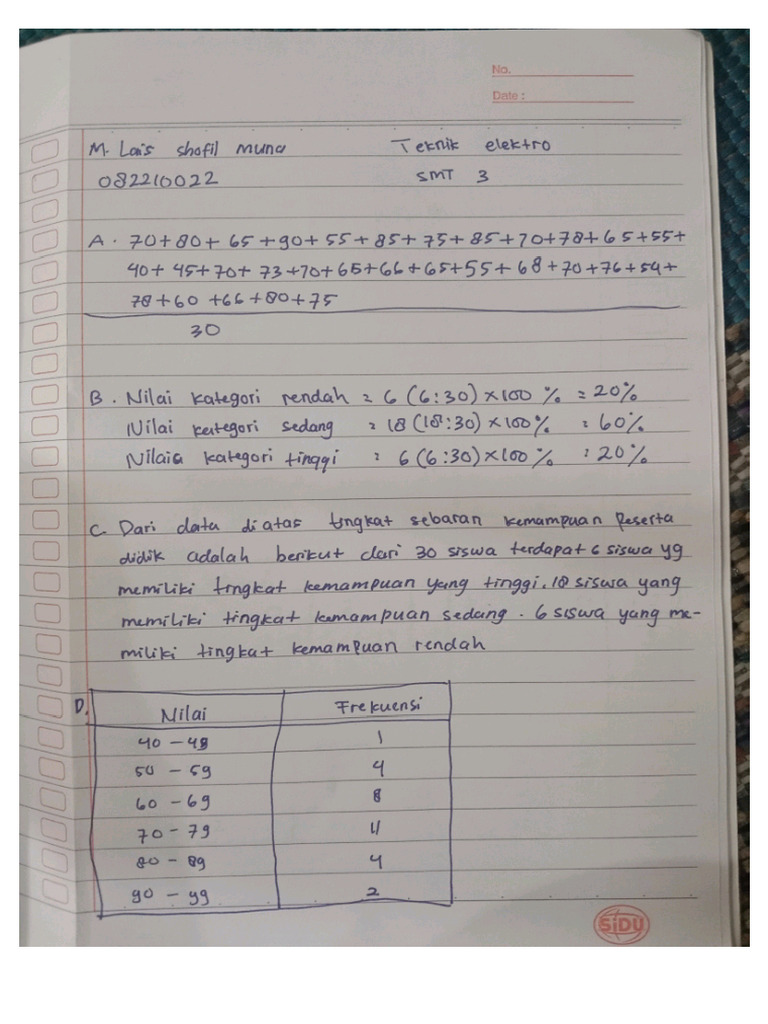 No.
Date :
M. Lais shofil muna Teknik elektro
082210022 SMT 3
A. 70+80+ 65 +90+55+85+75+85+70+78+65+55+
40+ 45+70+ 73+70+65+66+65+55+68+70+76+54+
78+60 +66+80+75
30
B. Nilai kategori rendah = 6 (6:30) x100 % = 20%
Nilai kategori sedang = 18 (18:30) x100% = 60%
Nilaia kategori tinggi = 6 (6:30) x100% = 20%
C. Dari data diatas tingkat sebaran kemampuan Peserta
didik adalah berikut dari 30 siswa terdapat 6 siswa yg
memiliki tingkat kemampuan yang tinggi. 18 siswa yang
memiliki tingkat kemampuan sedang. 6 siswa yang me-
miliki tingkat kemampuan rendah
D. Nilai Frekuensi
40 - 49 1
50 - 59 4
60 - 69 8
70 - 79 11
80 - 89 4
90 - 99 2
SiDU